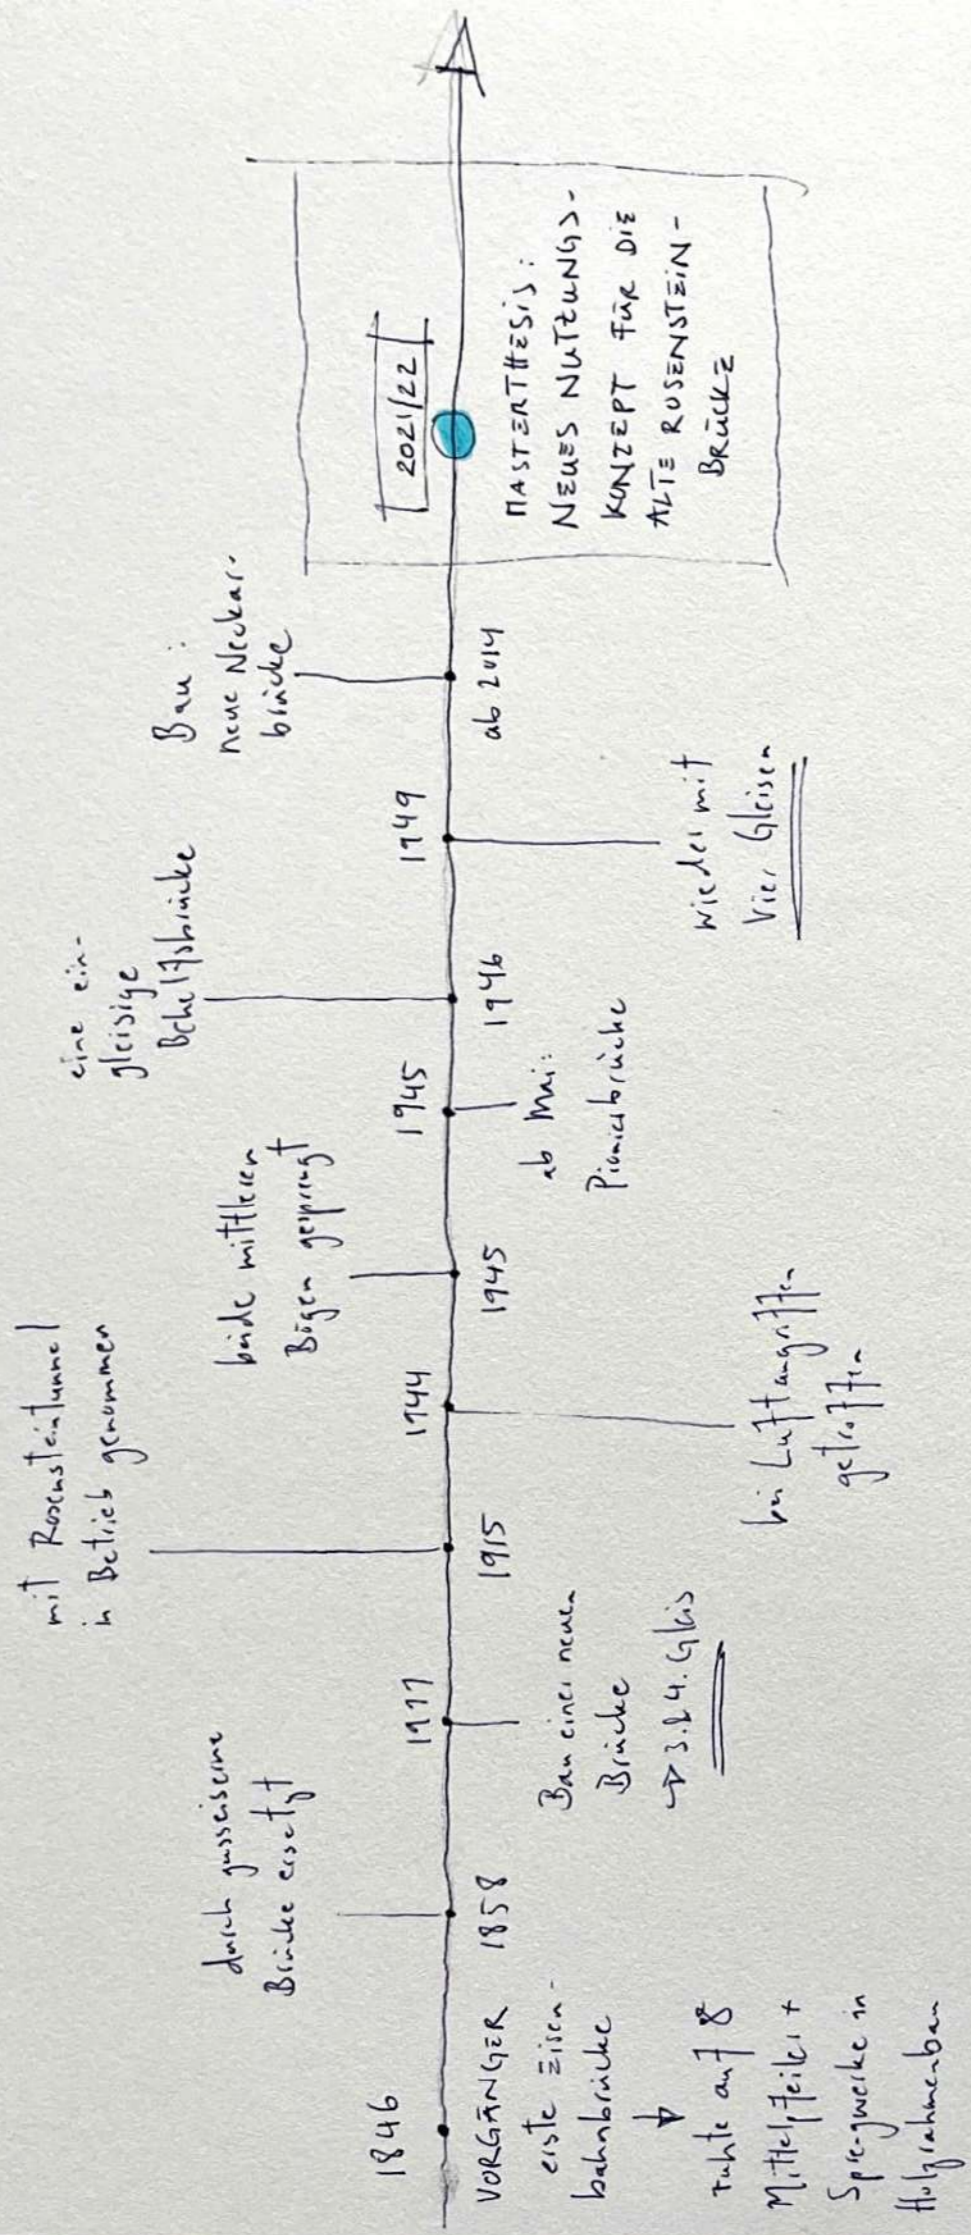 1846
VORGÄNGER
erste Eisen-
bahnbrücke
ruhte auf 8
Mittelpfeiler +
Sprengwerke in
Holzrahmenbau
durch gusseiserne
Brücke ersetzt
1858
1911
Bau einer neuen
Brücke
→ 3. & 4. Gleis
mit Rosensteintunnel
in Betrieb genommen
1915
1944
bei Luftangriffen
getroffen
beide mittleren
Bögen gesprengt
1945
1945
ab Mai:
Pionierbrücke
eine ein-
gleisige
Behelfsbrücke
1946
1949
wieder mit
vier Gleisen
Bau:
neue Neckar-
brücke
ab 2014
2021/22
MASTERTHESIS:
NEUES NUTZUNGS-
KONZEPT FÜR DIE
ALTE ROSENSTEIN-
BRÜCKE